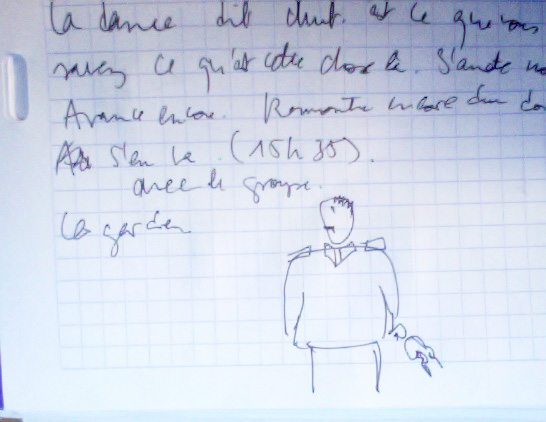 La dame dit chut. est ce que vous
savez ce qu'est cette chose là. S'arrête
Avance encore. Remonte encore d'un
s'en va. (15h35).
avec le groupe.
Le gardien